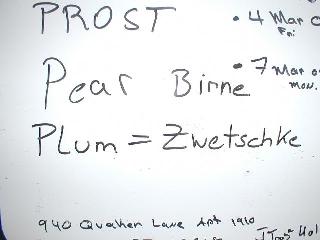 PROST
• 4 Mar
Fri
Pear Birne
• 7 Mar
mon.
PLum = Zwetschke
940 Quaken Lane Apt 1910